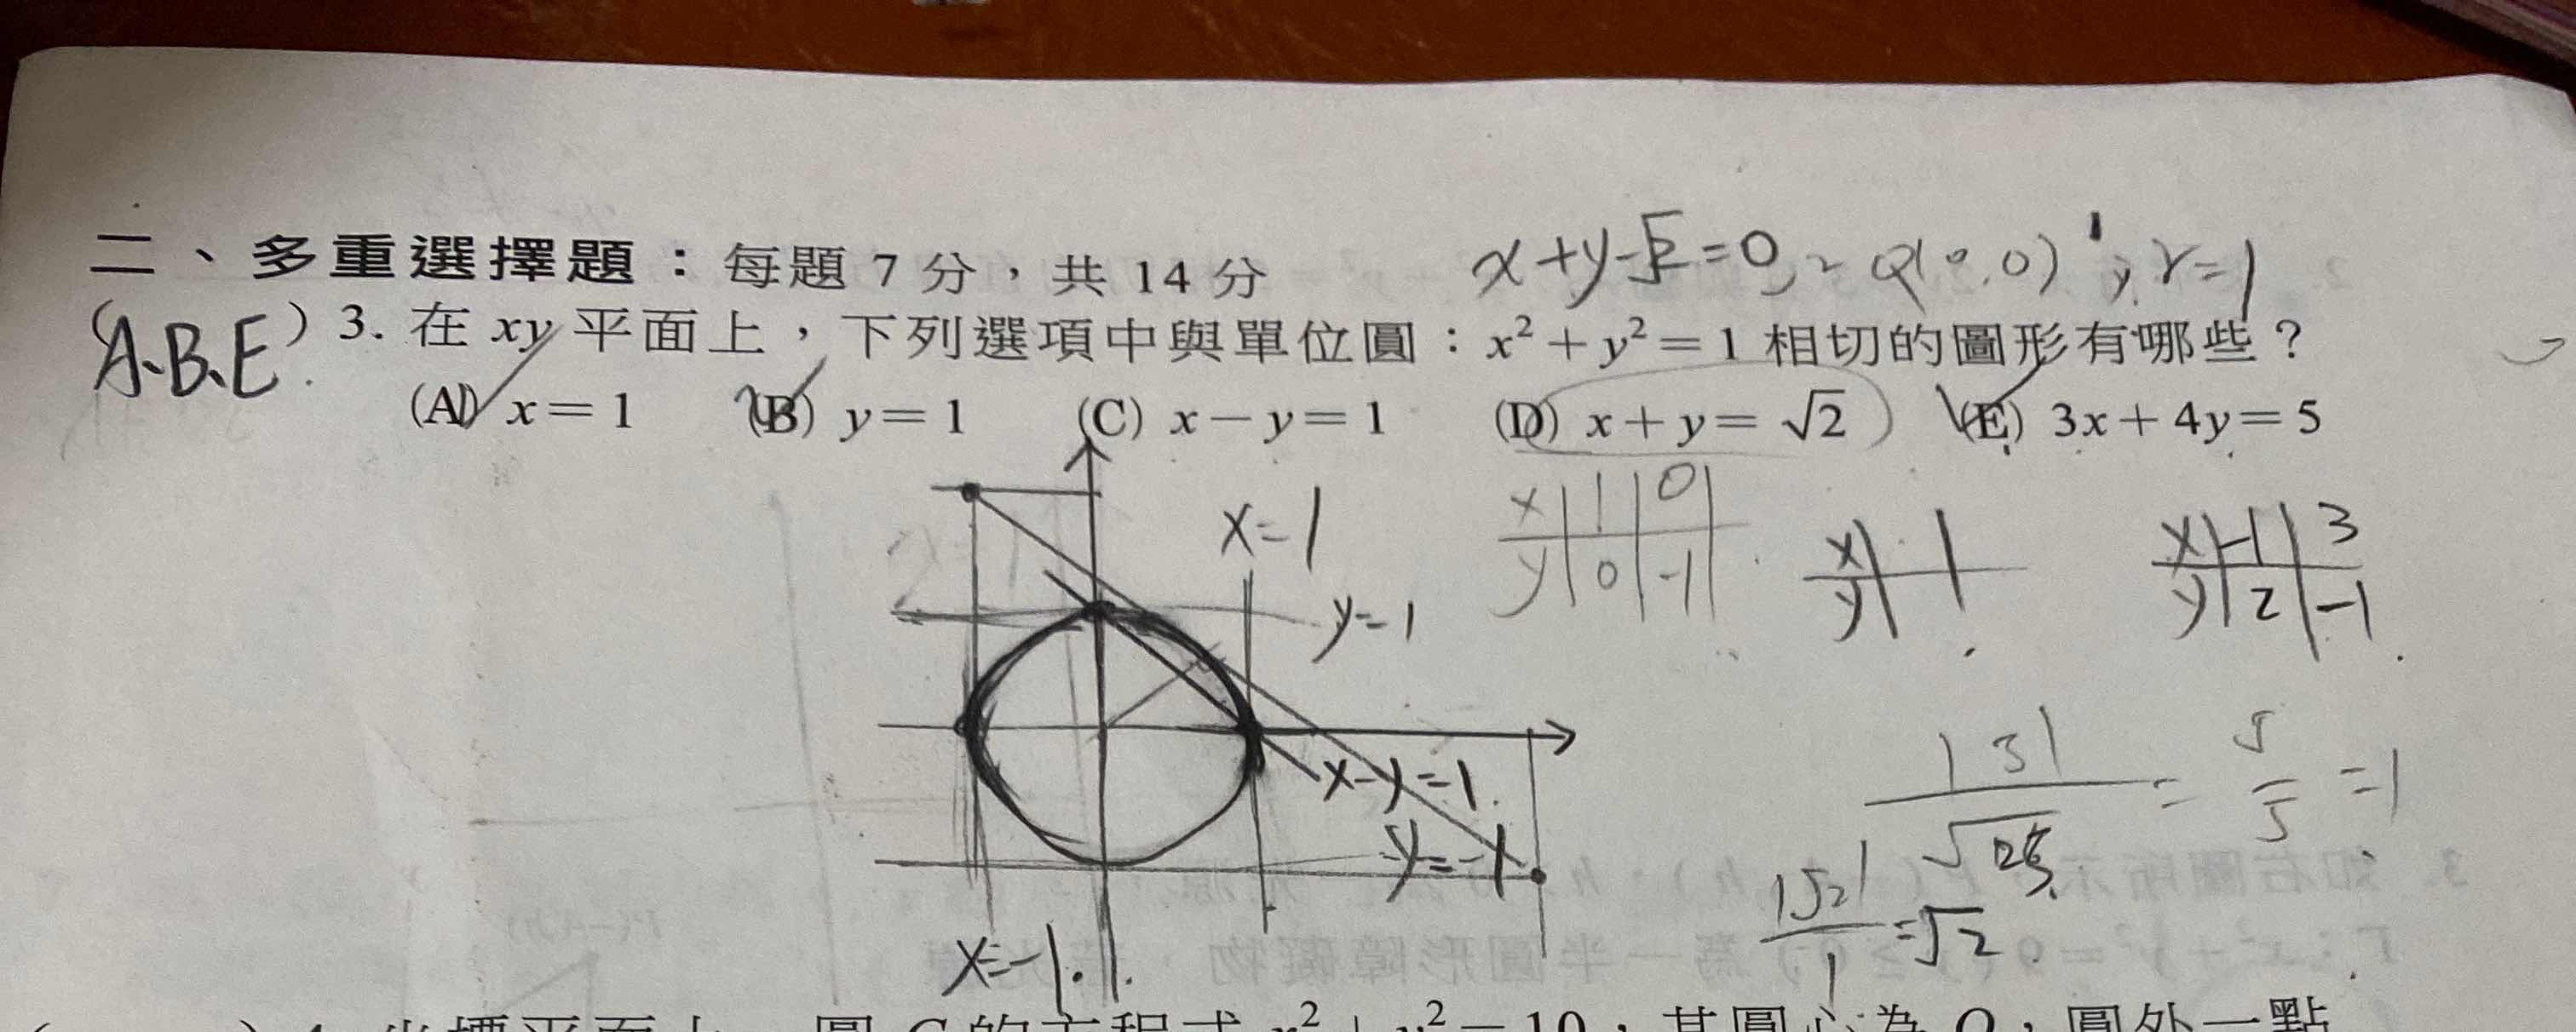 二、多重選擇題：每題 7 分，共 14 分
x+y-√2=0, Q(0,0), r=1
(A、B、E) 3. 在 xy 平面上，下列選項中與單位圓：x²+y²=1 相切的圖形有哪些？
(A) x=1 (B) y=1 (C) x-y=1 (D) x+y=√2 (E) 3x+4y=5
x 1 0
y 0 -1
x 1
y
x -1 3
y 2 -1
x=1
y=1
x-y=1
y=-1
x=-1
=5/5=1
|√2|/1=√2
坐標平面上，圓 C 的方程式 x²+y²=10，其圓心為 O，圓外一點